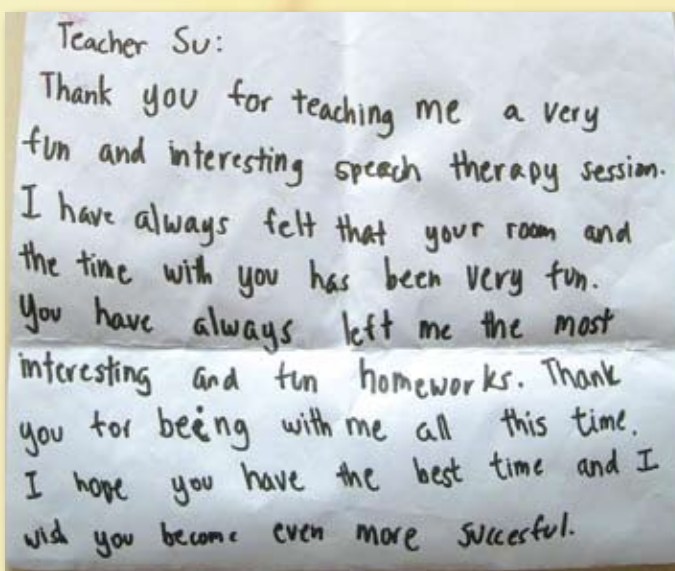 Teacher Su:
Thank you for teaching me a very
fun and interesting speach therapy session.
I have always felt that your room and
the time with you has been very fun.
You have always left me the most
interesting and fun homeworks. Thank
you for being with me all this time.
I hope you have the best time and I
wish you become even more succesful.